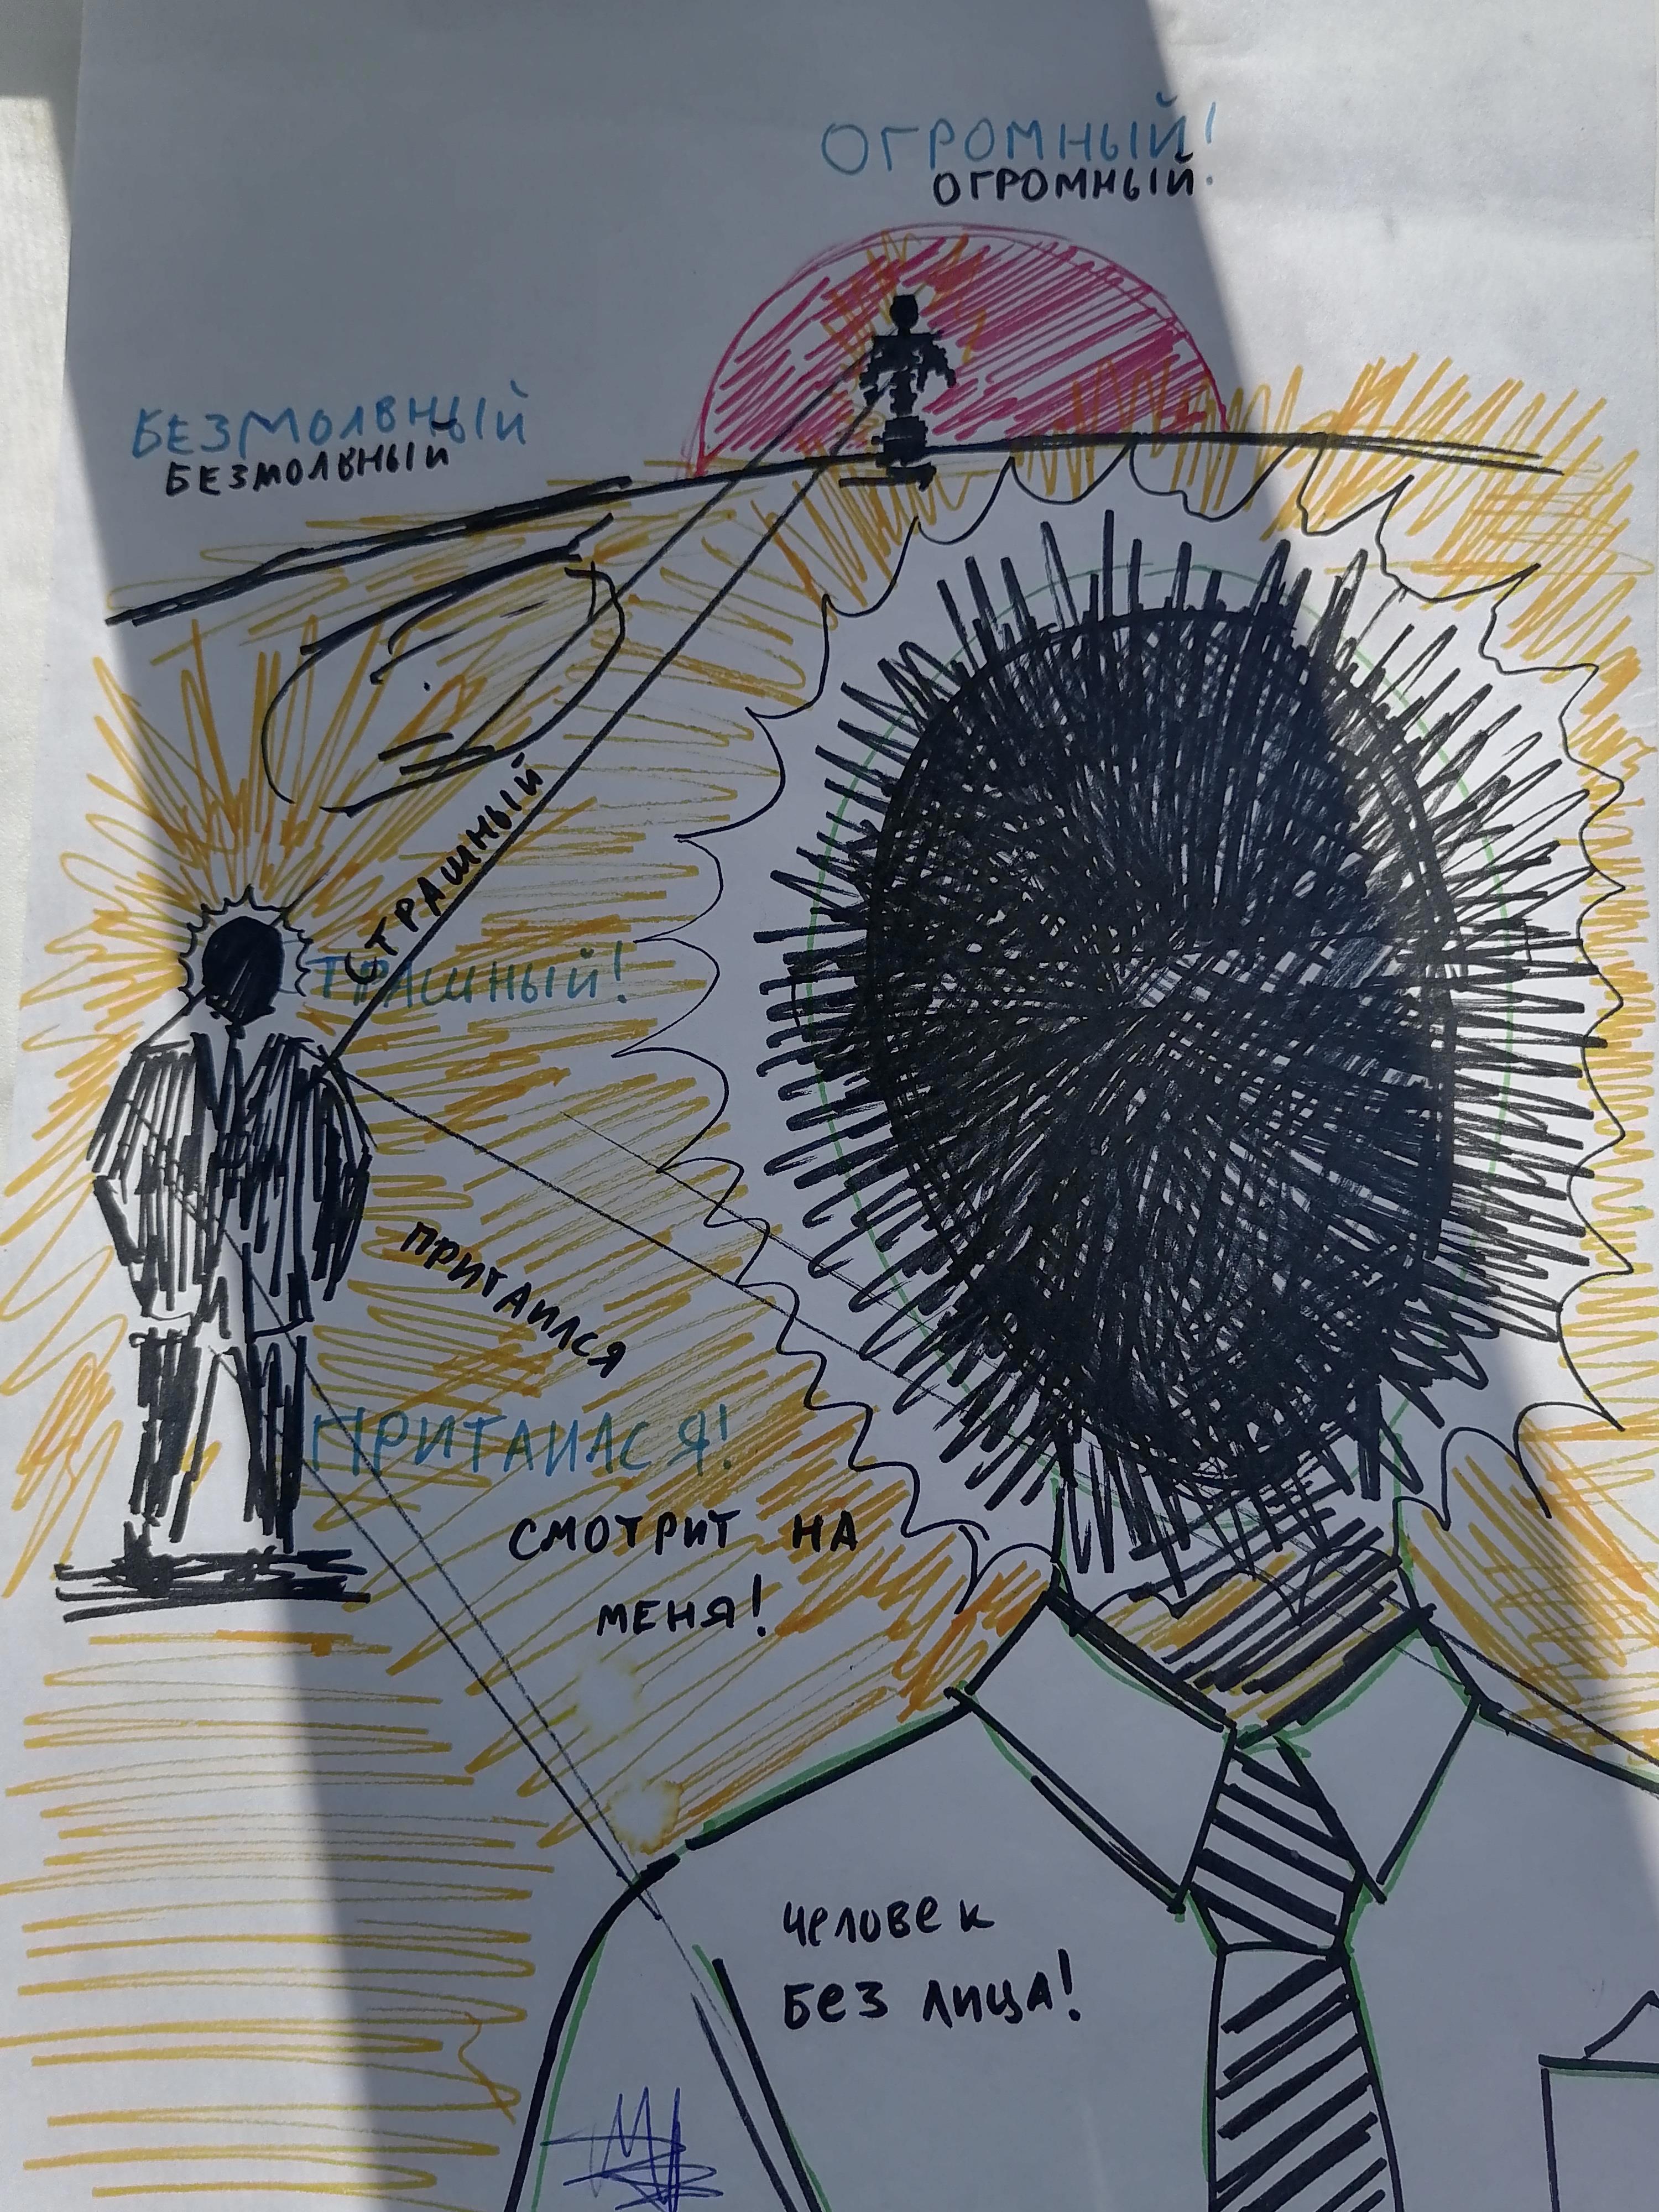 ОГРОМНЫЙ!
ОГРОМНЫЙ.
БЕЗМОЛВНЫЙ
БЕЗМОЛЬНЫЙ
СТРАШНЫЙ
СТРАШНЫЙ!
ПРИТАИЛСЯ
ПРИТАИЛСЯ!
СМОТРИТ НА
МЕНЯ!
ЧЕЛОВЕК
БЕЗ ЛИЦА!